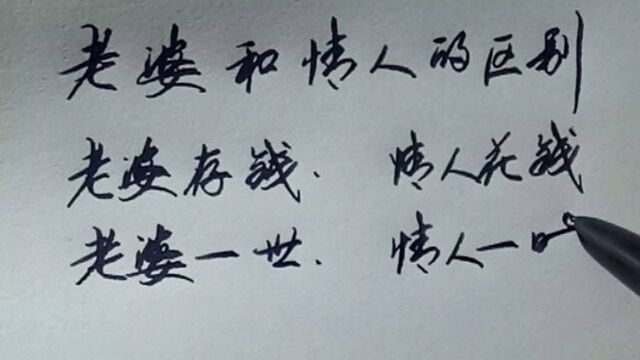 老婆和情人的区别
老婆存钱. 情人花钱
老婆一世. 情人一